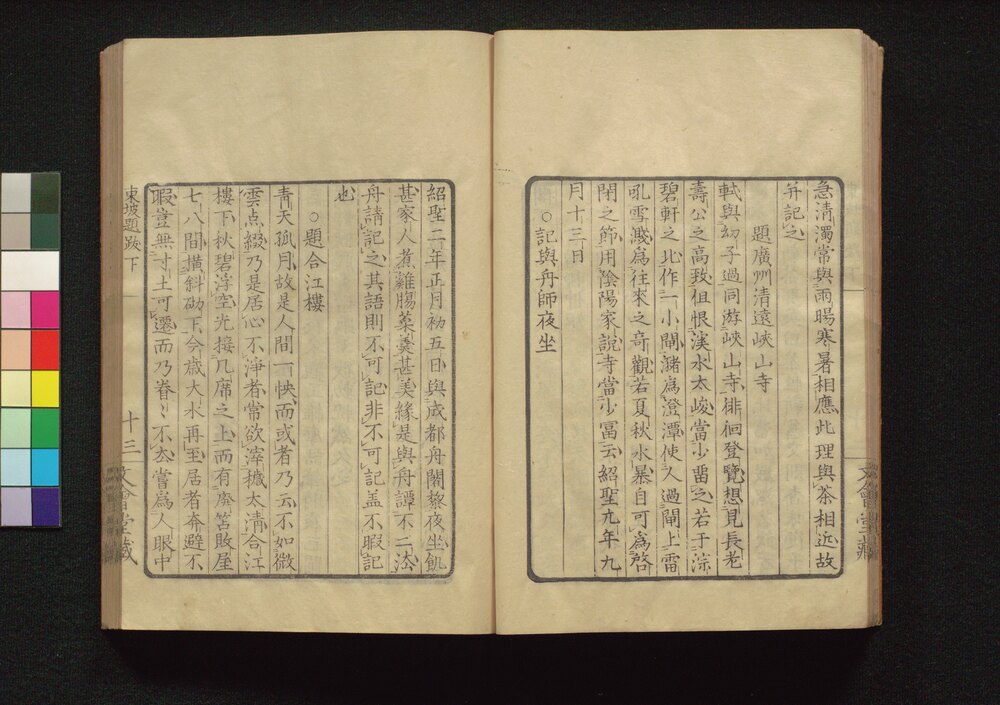 急清濁常與雨暘寒暑相應此理與茶相近故
并記之
題廣州清遠峽山寺
軾與幼子過同游峽山寺徘徊登覽想見長老
壽公之高致但恨溪水太峻當少留之若于淙
碧軒之北作一小閘瀦爲澄潭使人過閘上雷
吼雪濺爲往來之奇觀若夏秋水暴自可爲啓
閉之節用陰陽家説寺當少冨云紹聖九年九
月十三日
○記與舟師夜坐
紹聖二年正月初五日與成都舟闍黎夜坐飢
甚家人煮雞膓菜羹甚美緣是與舟譚不二法
舟請記之其語則不可記非不可記盖不暇記
也
○題合江樓
青天孤月故是人間一快而或者乃云不如微
雲点綴乃是居心不淨者常欲滓穢太清合江
樓下秋碧浮空光接几席之上而有廃笘敗屋
七八間横斜砌下今歳大水再至居者奔避不
暇豈無寸土可遷而乃眷〻不去嘗爲人眼中
東坡題跋下
十三
文會堂藏